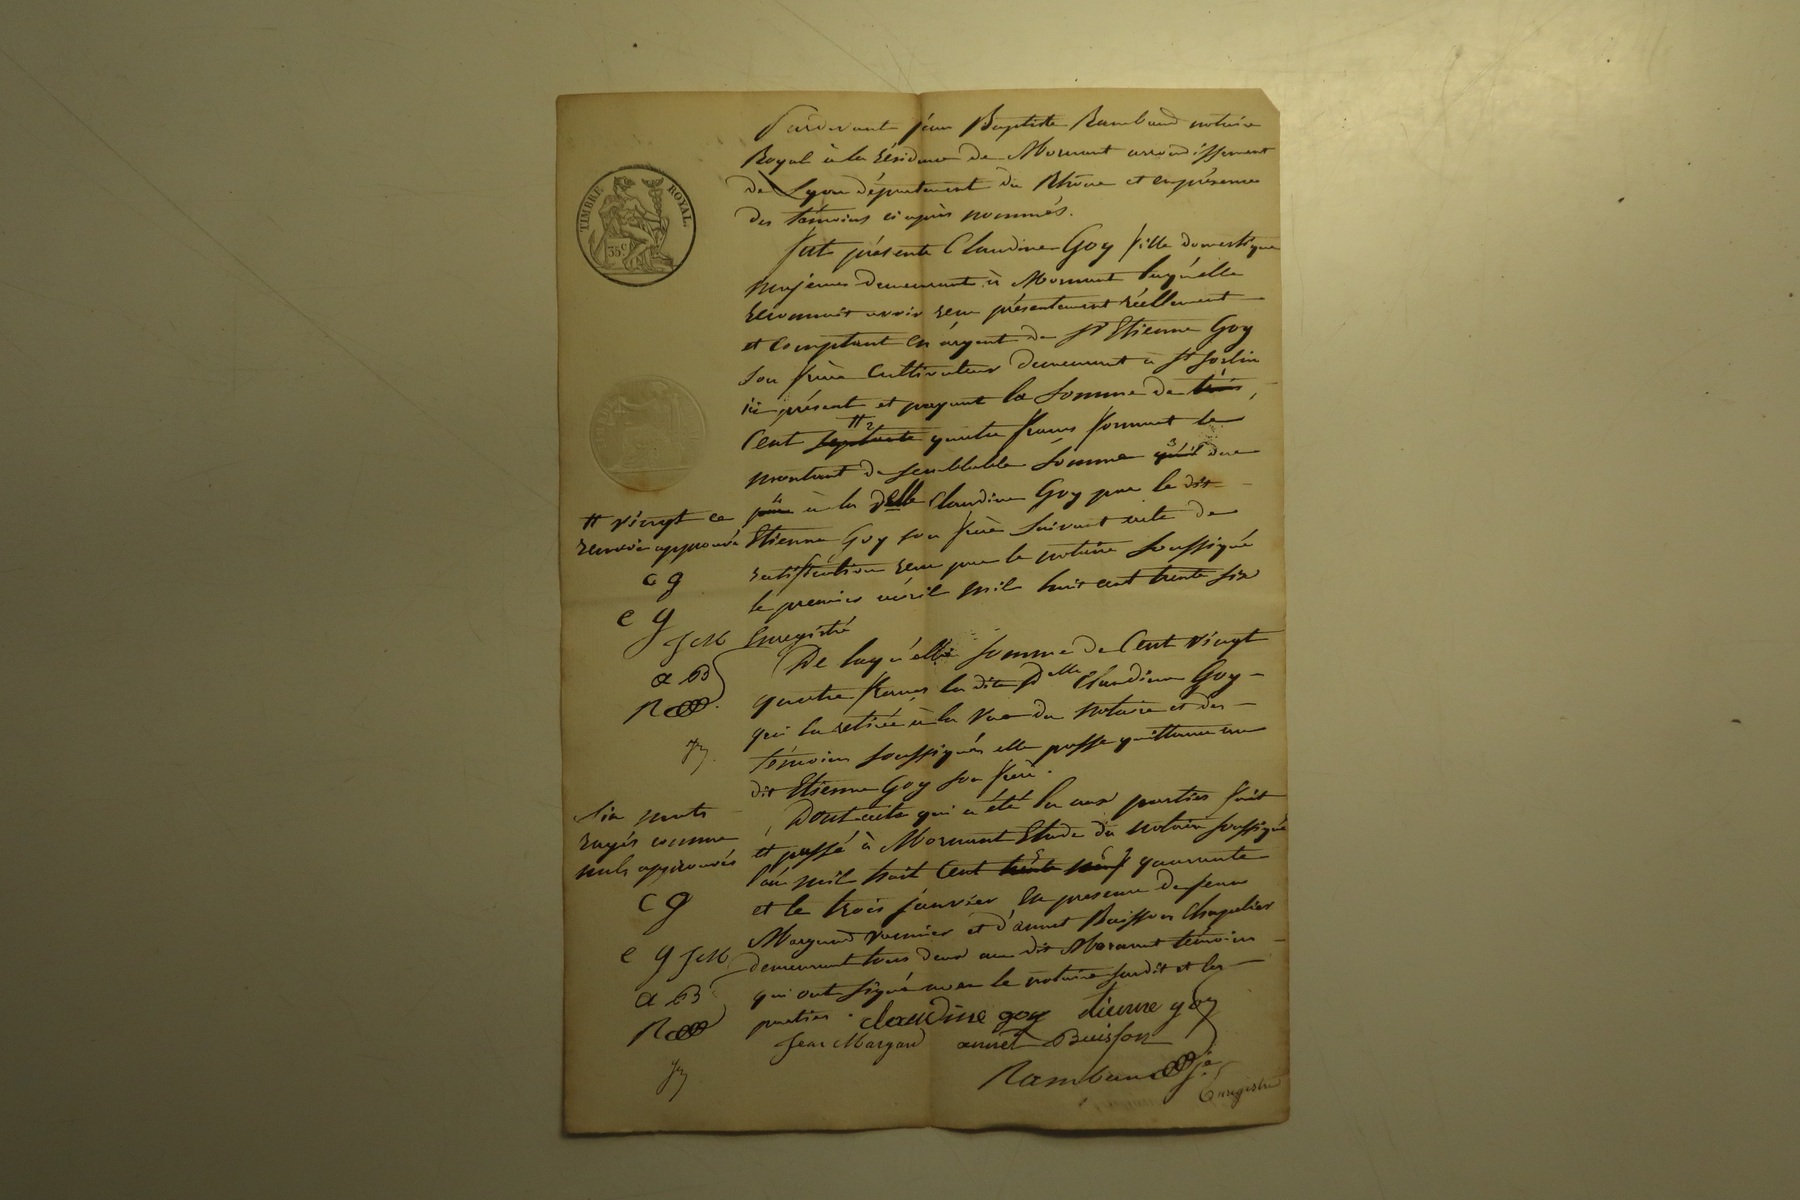 TIMBRE ROYAL
35 c
Pardevant jean Baptiste Rambaud notaire
Royal à la résidence de Mornant arrondissement
de Lyon département du Rhône et en présence
des témoins ci après nommés.
fut présente Claudine Goy fille domestique
majeure demeurant à Mornant laquelle
reconnait avoir reçu présentement réellement
et comptant en argent de sr Etienne Goy
son frère Cultivateur demeurant à st Sorlin
ici présent et payant la somme de trois
Cent septante quatre francs formant le
montant de semblable somme qu'il due
à la delle Claudine Goy par le dit
Etienne Goy son frère suivant acte de
ratification reçu par le notaire soussigné
le premier avril mil huit cent trente six
Enregistré
De laquelle somme de Cent vingt
quatre francs la dite Delle Claudine Goy
qui la retirée à la vue du notaire et des
témoins soussignés elle passe quittance au
dit Etienne Goy son frère.
Dont acte qui a été lu aux parties fait
et passé à Mornant Etude du notaire soussigné
l'an mil huit Cent trente neuf quarante
et le trois janvier En presence de jean
Margand vannier et d'annet Buisson Chapelier
demeurant tous deux au dit Mornant témoins
qui ont signé avec le notaire susdit et les
parties. claudine goy etienne goy
Jean Margand annet Buisson
Rambaud
Enregistré
# vingt ce
renvoi approuvé
c g
e g
J M
a B
R
Six mots
rayés comme
nuls approuvés
c g
e g J M
a B
R